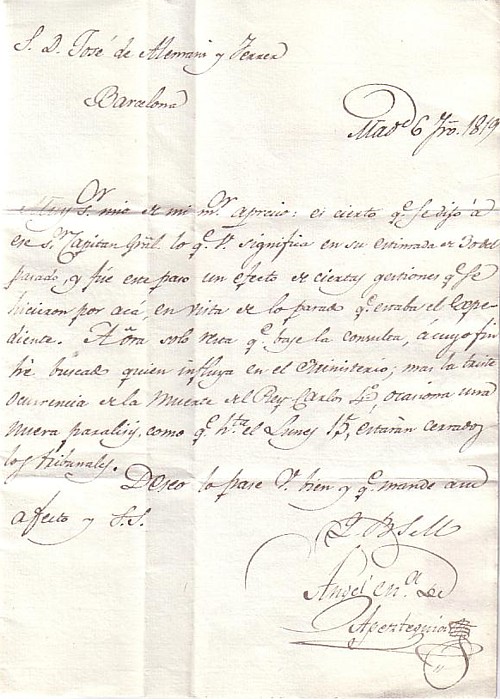 S. D. José de Alemani y Ferrer
Barcelona
Mad.d 6 Fro. 1819
Muy Sr. mio de mi mr. aprecio: es cierto qe. se dijó á
ese Sr. Capitan Gral. lo qe. V. significa en su estimada de 30 del
pasado, y fué ese paso un efecto de ciertas gestiones qe. se
hicieron por acá, en vista de lo parado qe. estaba el Expe-
diente. Aóra solo resta qe. baje la consulta, a cuyo fin
hé buscado quien influya en el Ministerio; mas la triste
ocurrencia de la muerte del Rey Carlos 4º, ocasiona una
nueva paralisis, como qe. hta. el Lunes 15, estarán cerrados
los tribunales.
Deseo lo pase V. bien y qe. mande a su
afecto y S.S.
Q B S M
Angel de